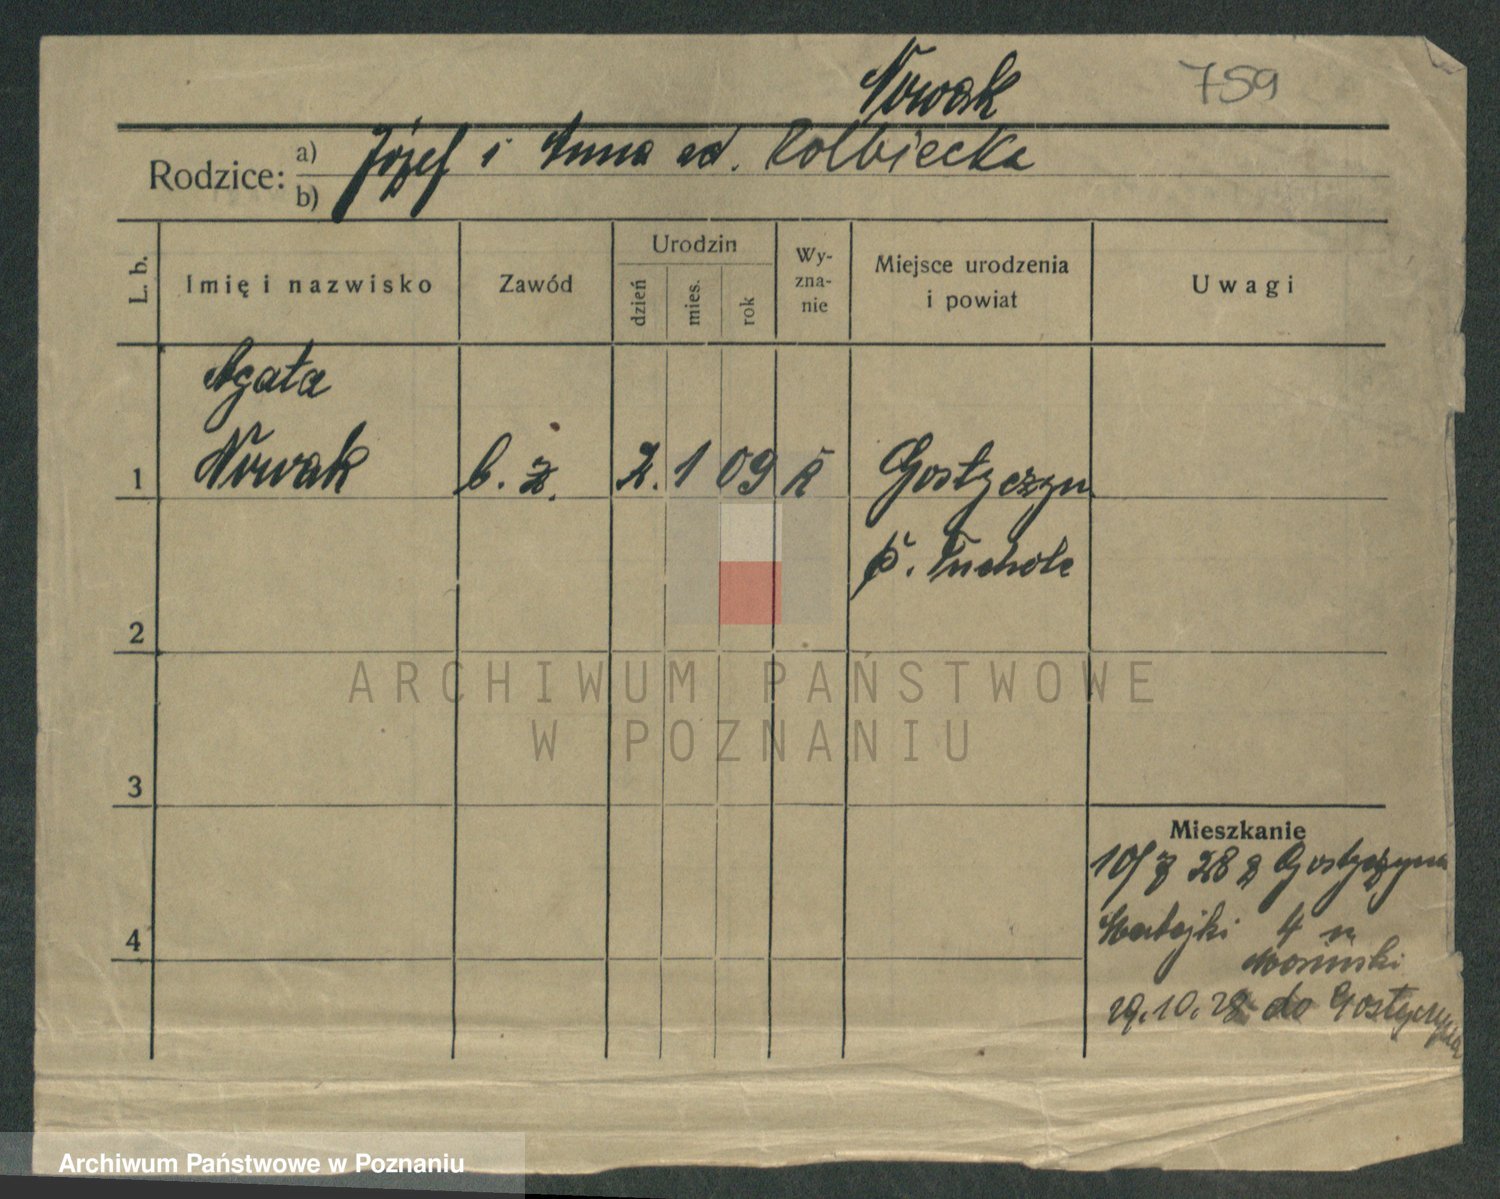 Nowak 759
Rodzice: a) Józef i Anna Kolbiecka
b)
L. b. Imię i nazwisko Zawód Urodzin dzień mies. rok Wy-zna-nie Miejsce urodzenia i powiat Uwagi
Agata
1 Nowak b. z. 2. 1 09 k Gostyczyn
p. Tuchole
2
ARCHIWUM PAŃSTWOWE
W POZNANIU
3
Mieszkanie
28 z Gostyczyna
4 Matejki 4
29.10.28 do Gostyczyna
Archiwum Państwowe w Poznaniu